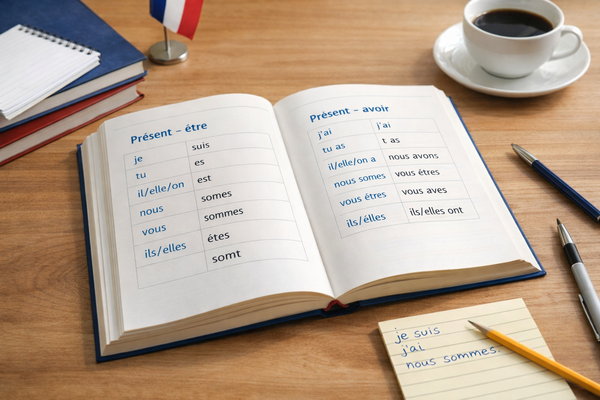 Présent – étre
je suis
tu es
il/elle/on est
nous somes
vous sommes
ils/elles étes
somt
Présent – avoir
j'ai j'ai
tu as t as
il/elle/on a nous avons
nous somes vous étres
vous étres vous aves
ils/élles ils/elles ont
je suis
j'ai
nous sommes.